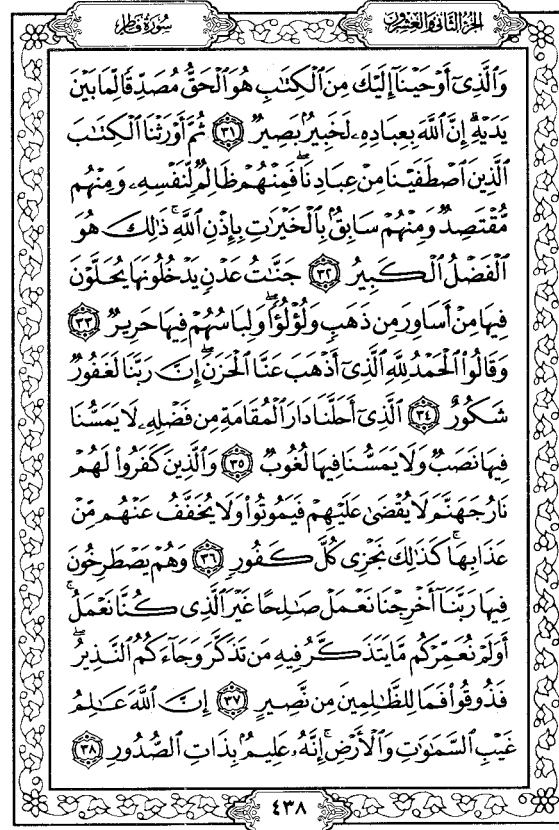 الجزء الثاني والعشرون
سورة فاطر
وَٱلَّذِىٓ أَوْحَيْنَآ إِلَيْكَ مِنَ ٱلْكِتَٰبِ هُوَ ٱلْحَقُّ مُصَدِّقًا لِّمَا بَيْنَ
يَدَيْهِ ۗ إِنَّ ٱللَّهَ بِعِبَادِهِۦ لَخَبِيرٌۢ بَصِيرٌ ﴿٣١﴾ ثُمَّ أَوْرَثْنَا ٱلْكِتَٰبَ
ٱلَّذِينَ ٱصْطَفَيْنَا مِنْ عِبَادِنَا ۖ فَمِنْهُمْ ظَالِمٌ لِّنَفْسِهِۦ وَمِنْهُم
مُّقْتَصِدٌ وَمِنْهُمْ سَابِقٌۢ بِٱلْخَيْرَٰتِ بِإِذْنِ ٱللَّهِ ۚ ذَٰلِكَ هُوَ
ٱلْفَضْلُ ٱلْكَبِيرُ ﴿٣٢﴾ جَنَّٰتُ عَدْنٍ يَدْخُلُونَهَا يُحَلَّوْنَ
فِيهَا مِنْ أَسَاوِرَ مِن ذَهَبٍ وَلُؤْلُؤًا ۖ وَلِبَاسُهُمْ فِيهَا حَرِيرٌ ﴿٣٣﴾
وَقَالُوا۟ ٱلْحَمْدُ لِلَّهِ ٱلَّذِىٓ أَذْهَبَ عَنَّا ٱلْحَزَنَ ۖ إِنَّ رَبَّنَا لَغَفُورٌ
شَكُورٌ ﴿٣٤﴾ ٱلَّذِىٓ أَحَلَّنَا دَارَ ٱلْمُقَامَةِ مِن فَضْلِهِۦ لَا يَمَسُّنَا
فِيهَا نَصَبٌ وَلَا يَمَسُّنَا فِيهَا لُغُوبٌ ﴿٣٥﴾ وَٱلَّذِينَ كَفَرُوا۟ لَهُمْ
نَارُ جَهَنَّمَ لَا يُقْضَىٰ عَلَيْهِمْ فَيَمُوتُوا۟ وَلَا يُخَفَّفُ عَنْهُم مِّنْ
عَذَابِهَا ۚ كَذَٰلِكَ نَجْزِى كُلَّ كَفُورٍ ﴿٣٦﴾ وَهُمْ يَصْطَرِخُونَ
فِيهَا رَبَّنَآ أَخْرِجْنَا نَعْمَلْ صَٰلِحًا غَيْرَ ٱلَّذِى كُنَّا نَعْمَلُ ۚ
أَوَلَمْ نُعَمِّرْكُم مَّا يَتَذَكَّرُ فِيهِ مَن تَذَكَّرَ وَجَآءَكُمُ ٱلنَّذِيرُ ۖ
فَذُوقُوا۟ فَمَا لِلظَّٰلِمِينَ مِن نَّصِيرٍ ﴿٣٧﴾ إِنَّ ٱللَّهَ عَٰلِمُ
غَيْبِ ٱلسَّمَٰوَٰتِ وَٱلْأَرْضِ ۚ إِنَّهُۥ عَلِيمٌۢ بِذَاتِ ٱلصُّدُورِ ﴿٣٨﴾
٤٣٨